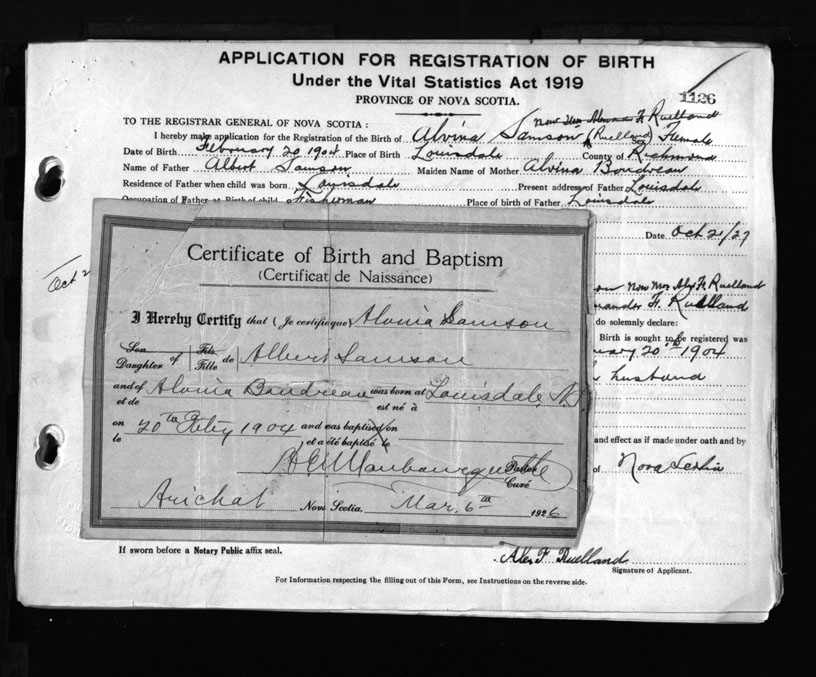 APPLICATION FOR REGISTRATION OF BIRTH
Under the Vital Statistics Act 1919
1136
PROVINCE OF NOVA SCOTIA.
now Mrs Alexander F. Ruelland
TO THE REGISTRAR GENERAL OF NOVA SCOTIA :
I hereby make application for the Registration of the Birth of Alvina Samson (Ruelland) Sex Female
Date of Birth February 20 1904 Place of Birth Louisdale County of Richmond
Name of Father Albert Samson Maiden Name of Mother Alvina Boudreau
Residence of Father when child was born Louisdale Present address of Father Louisdale
Occupation of Father at Birth of child Fisherman Place of birth of Father Louisdale
Date Oct 21/27
Oct 2
now Mrs Alex F. Ruelland
F. Ruelland
do solemnly declare:
Birth is sought to be registered was
20th 1904
husband
and effect as if made under oath and by
of Nova Scotia
Certificate of Birth and Baptism
(Certificat de Naissance)
I Hereby Certify that (Je certifie que) Alvina Samson
Son Daughter of Fils Fille de Albert Samson
and of et de Alvina Boudreau was born at est né à Louisdale, N.S.
on le 20th Feby 1904 and was baptised on et a été baptisé le
Pastor Curé
Arichat Nova Scotia, Mar. 6th 1926
If sworn before a Notary Public affix seal.
Alex F. Ruelland
Signature of Applicant.
For Information respecting the filling out of this Form, see Instructions on the reverse side.